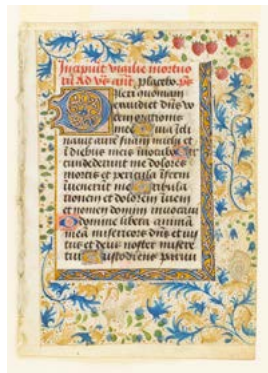 Incipiūt vigilie mortuo
rū Ad vēs ant̄ placebo ps̄
Dilexi quoniam
exaudiet dn̄s vo
cem orationis
mee Quia icli
nauit aurē suam michi et
ī diebus meis inuocabo Cir
cundederunt me dolores
mortis et pericula īferni
inuenerūt me Tribula
tionem et dolorem īueni
et nomen domini inuocaui
O domine libera animā
meā misericors dn̄s et ius
tus et deus noster misere
tur Custodiens paruu